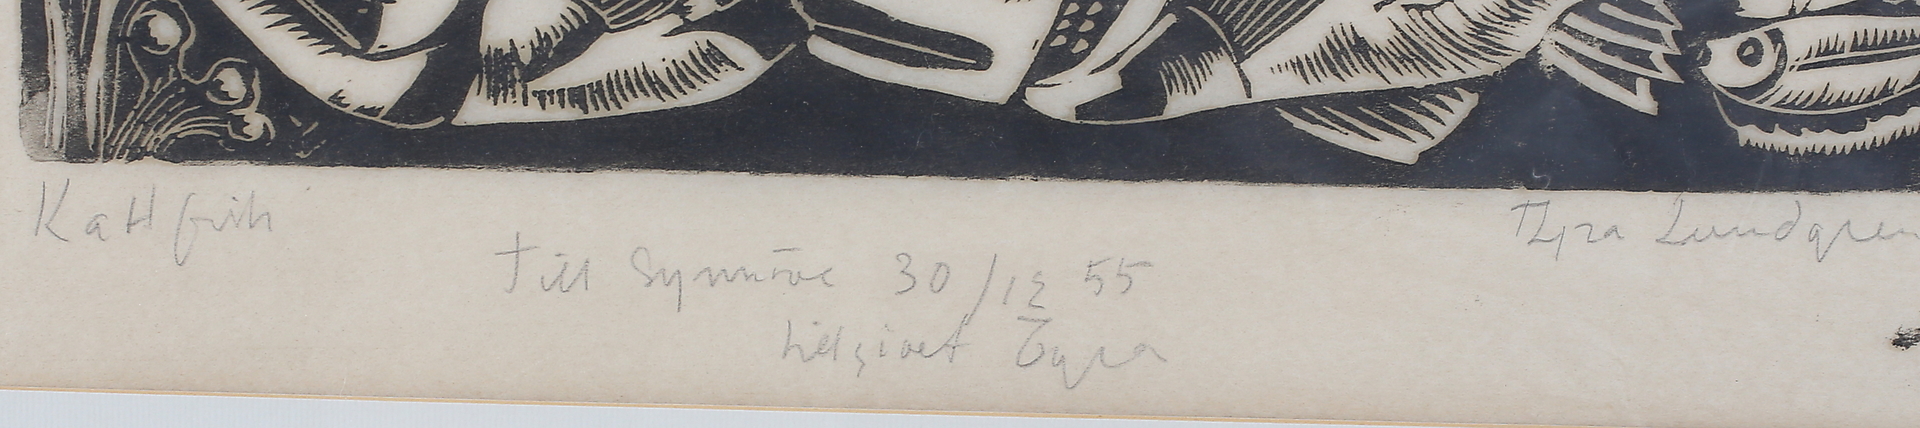 Kattfisk
Tyra Lundgren
Till Synnöve 30/12 55
Tyra